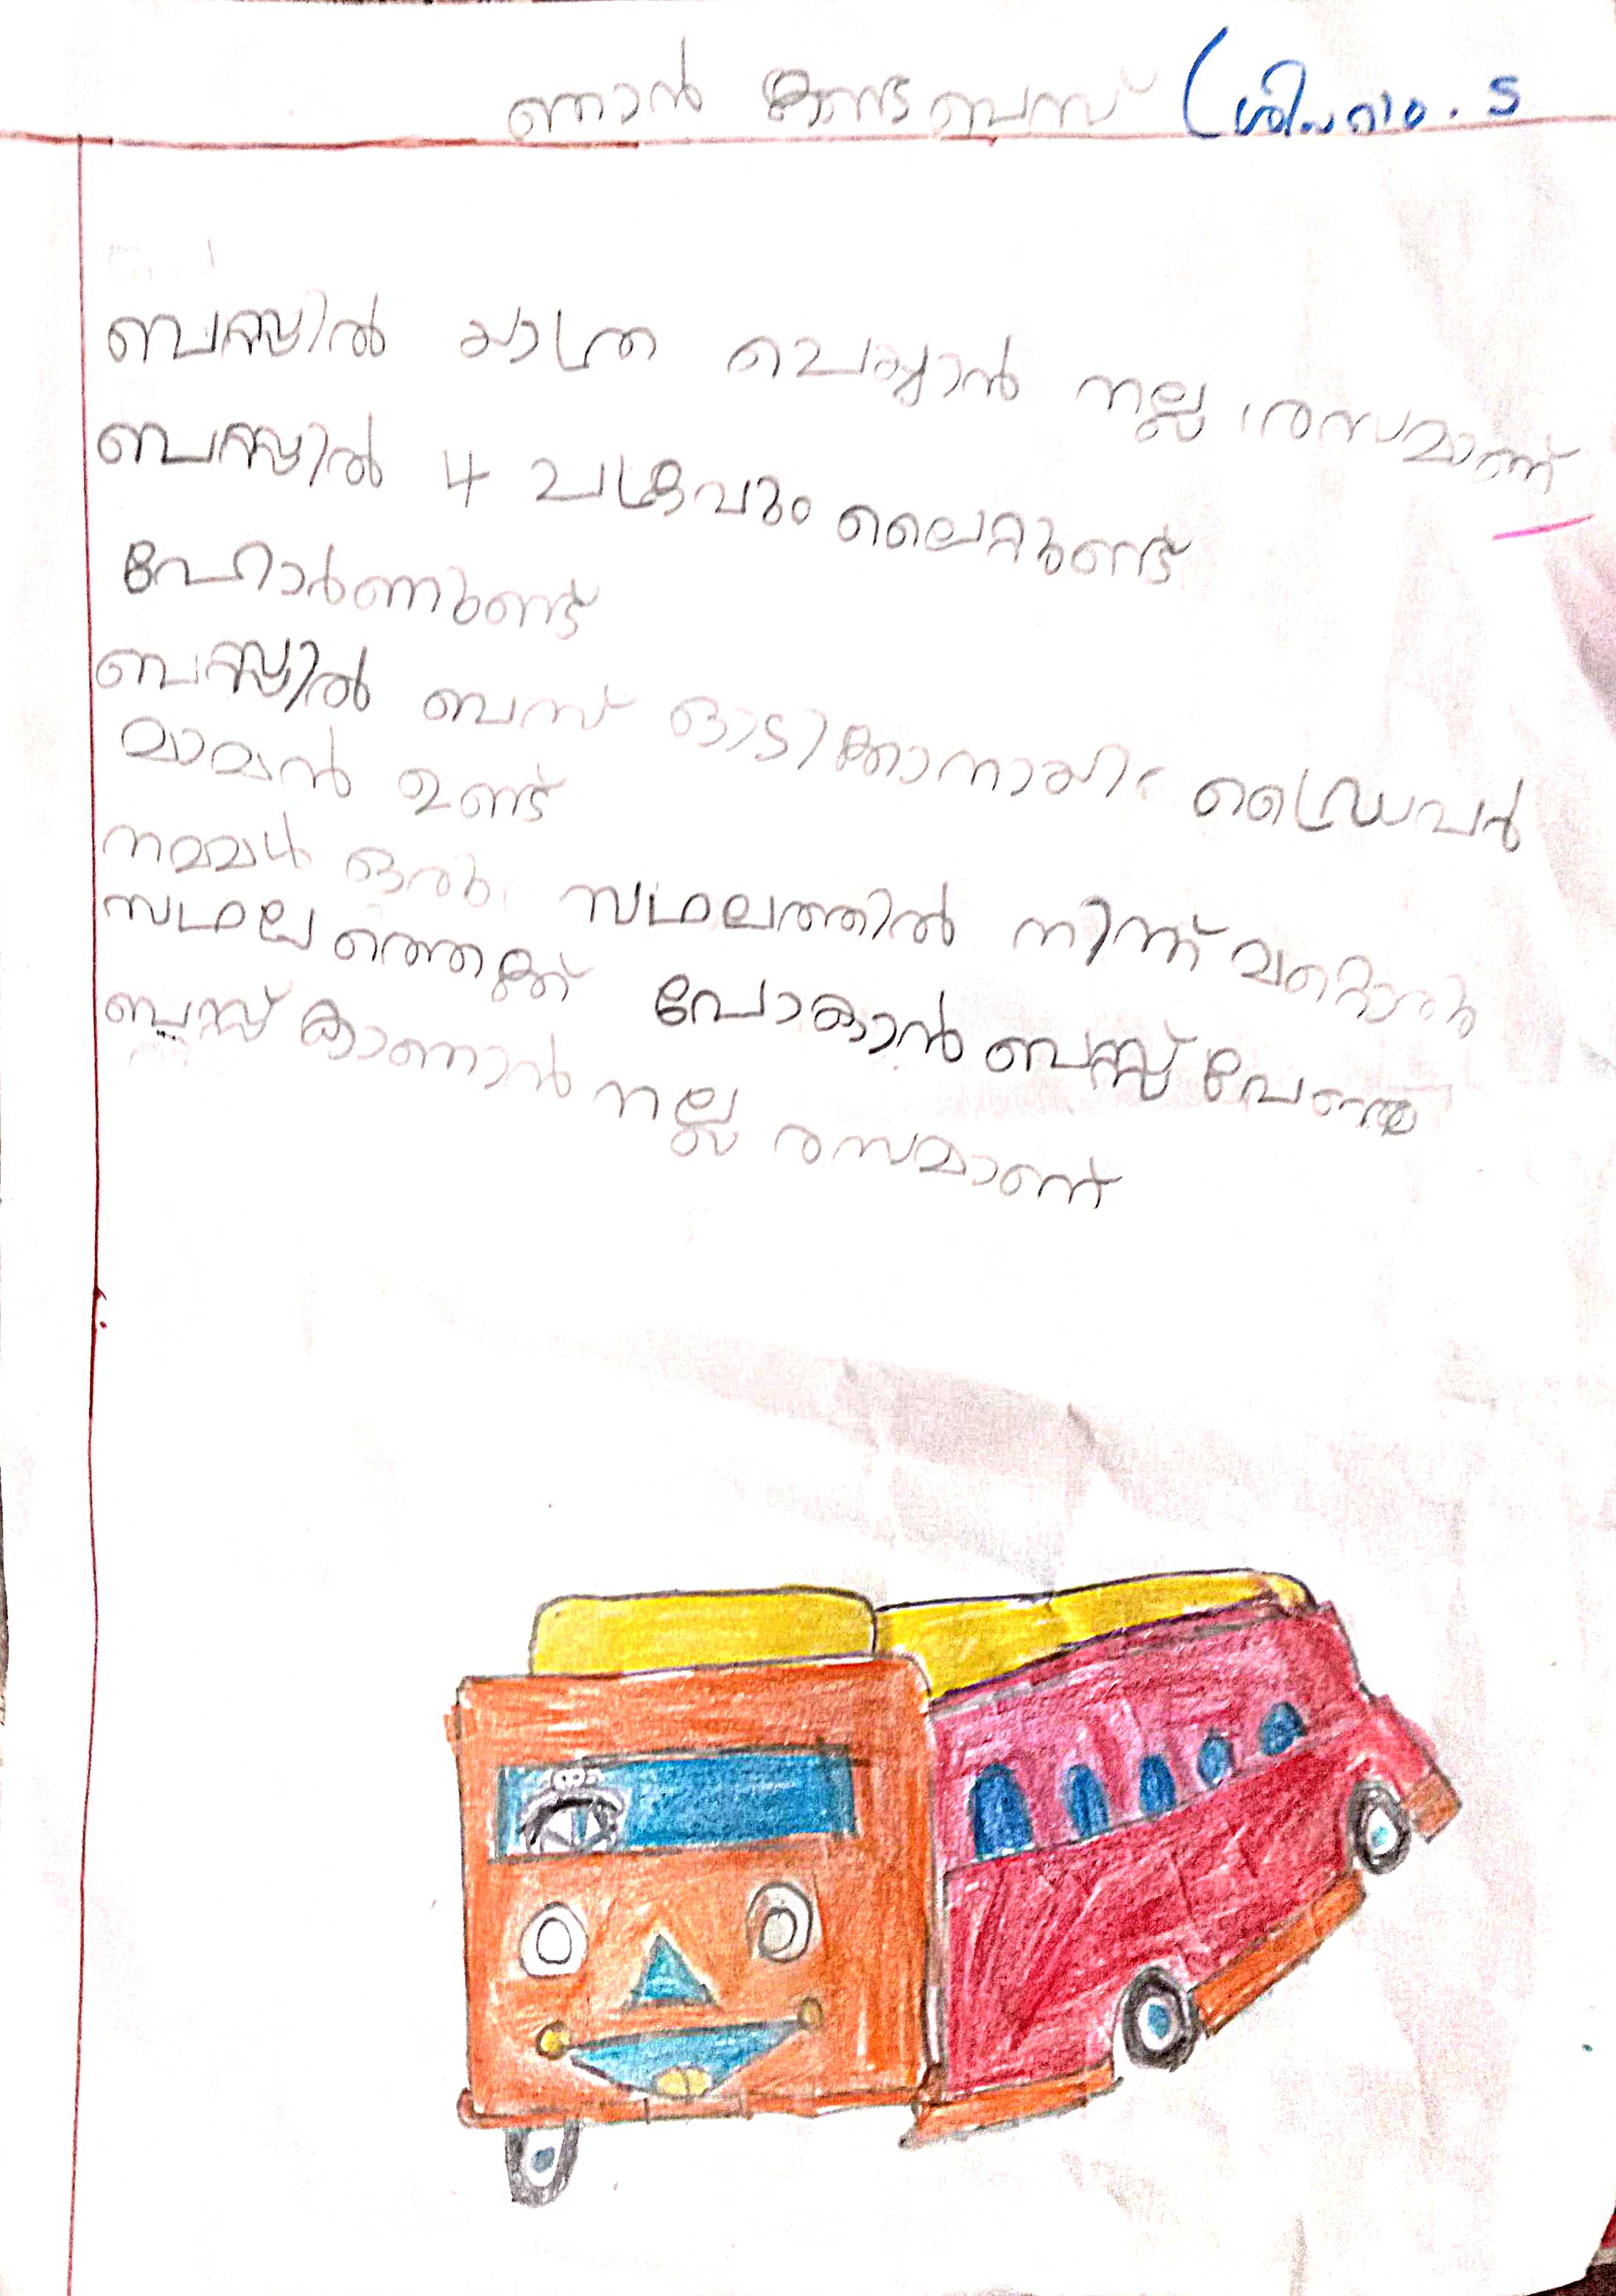 ഞാൻ കണ്ട ബസ്
ബസ്സിൽ യാത്ര ചെയ്യാൻ നല്ല രസമാണ്
ബസ്സിൽ 4 ചക്രവും ലൈറ്റുണ്ട്
ഹോർണുണ്ട്
ബസ്സിൽ ബസ് ഓടിക്കാനായി ഡ്രൈവർ
മാമൻ ഉണ്ട്
നമ്മൾ ഒരു സ്ഥലത്തിൽ നിന്ന് മറ്റൊരു
സ്ഥലത്തെക്ക് പോകാൻ ബസ്സ് വേണം
ബസ്സ് കാണാൻ നല്ല രസമാണ്